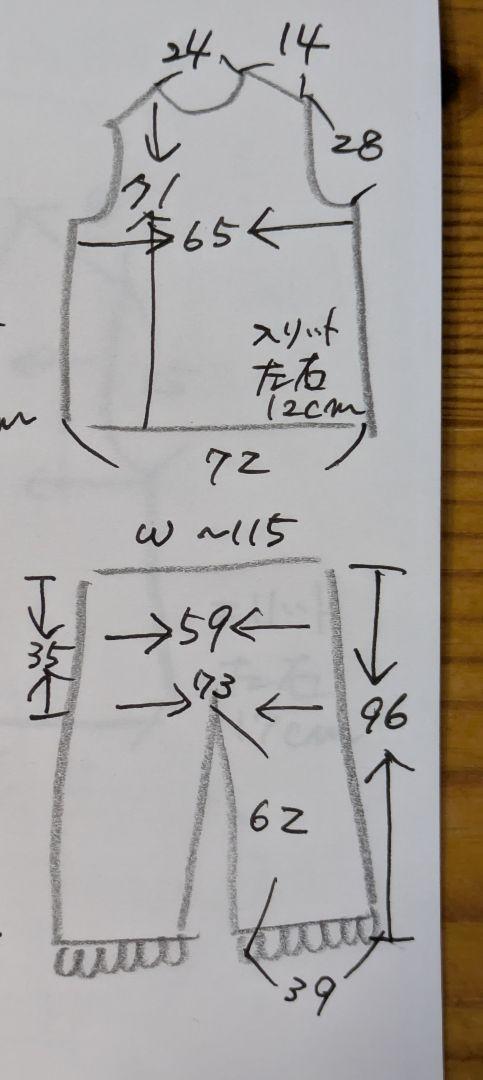 24
14
28
71
65
スリット
左右
12cm
72
W ~115
59
35
73
96
62
39